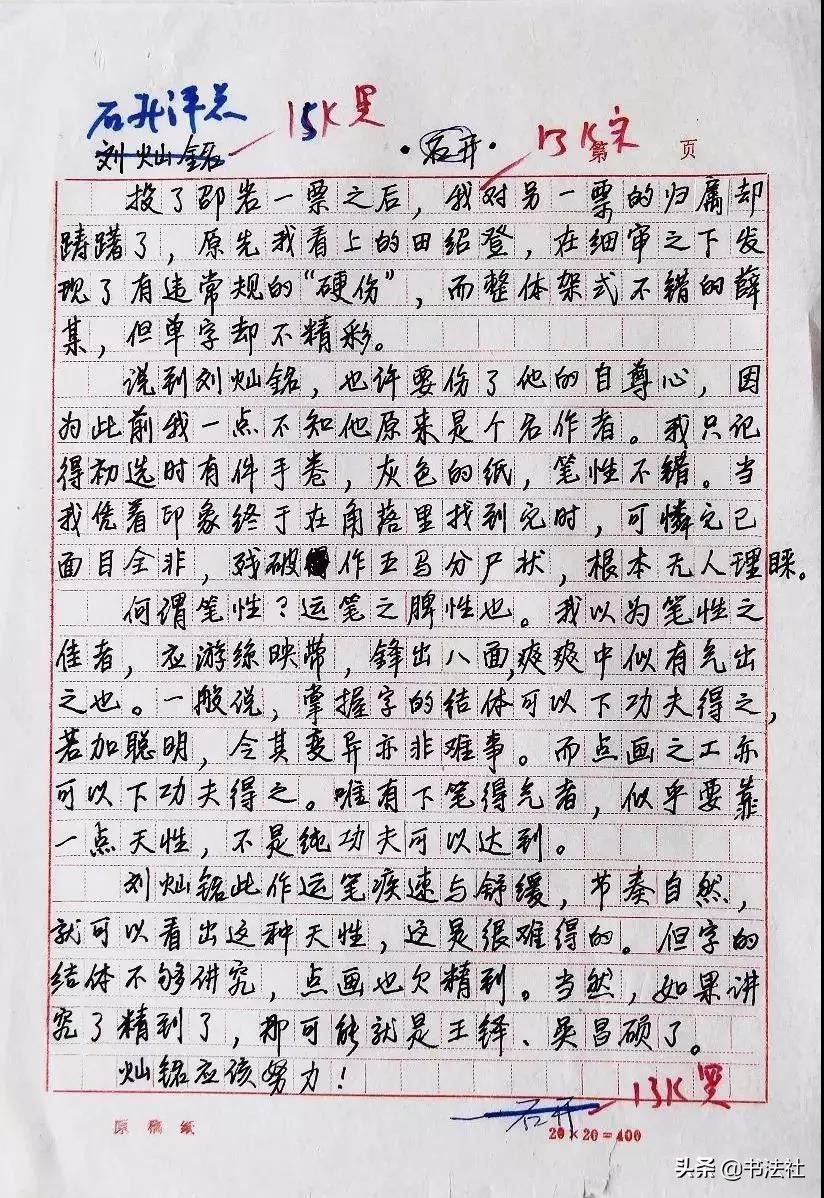 石开评总
15K黑
刘灿铭
·石开·
13K宋
第 页
投了邵岩一票之后，我对另一票的归属却
踌躇了，原先我看上的田绍登，在细审之下发
现了有违常规的“硬伤”，而整体架式不错的薛
某，但单字却不精彩。
说到刘灿铭，也许要伤了他的自尊心，因
为此前我一点不知他原来是个名作者。我只记
得初选时有件手卷，灰色的纸，笔性不错。当
我凭着印象终于在角落里找到它时，可怜它已
面目全非，残破作五马分尸状，根本无人理睬。
何谓笔性？运笔之脾性也。我以为笔性之
佳者，应游丝映带，锋出八面，爽爽中似有气出
之也。一般说，掌握字的结体可以下功夫得之，
若加聪明，令其变异亦非难事。而点画之工亦
可以下功夫得之。唯有下笔得气者，似乎要靠
一点天性，不是纯功夫可以达到。
刘灿铭此作运笔疾速与舒缓，节奏自然，
就可以看出这种天性，这是很难得的。但字的
结体不够讲究，点画也欠精到。当然，如果讲
究了精到了，那可能就是王铎、吴昌硕了。
灿铭应该努力！
石开
13K黑
原稿纸
20×20=400
头条 @书法社